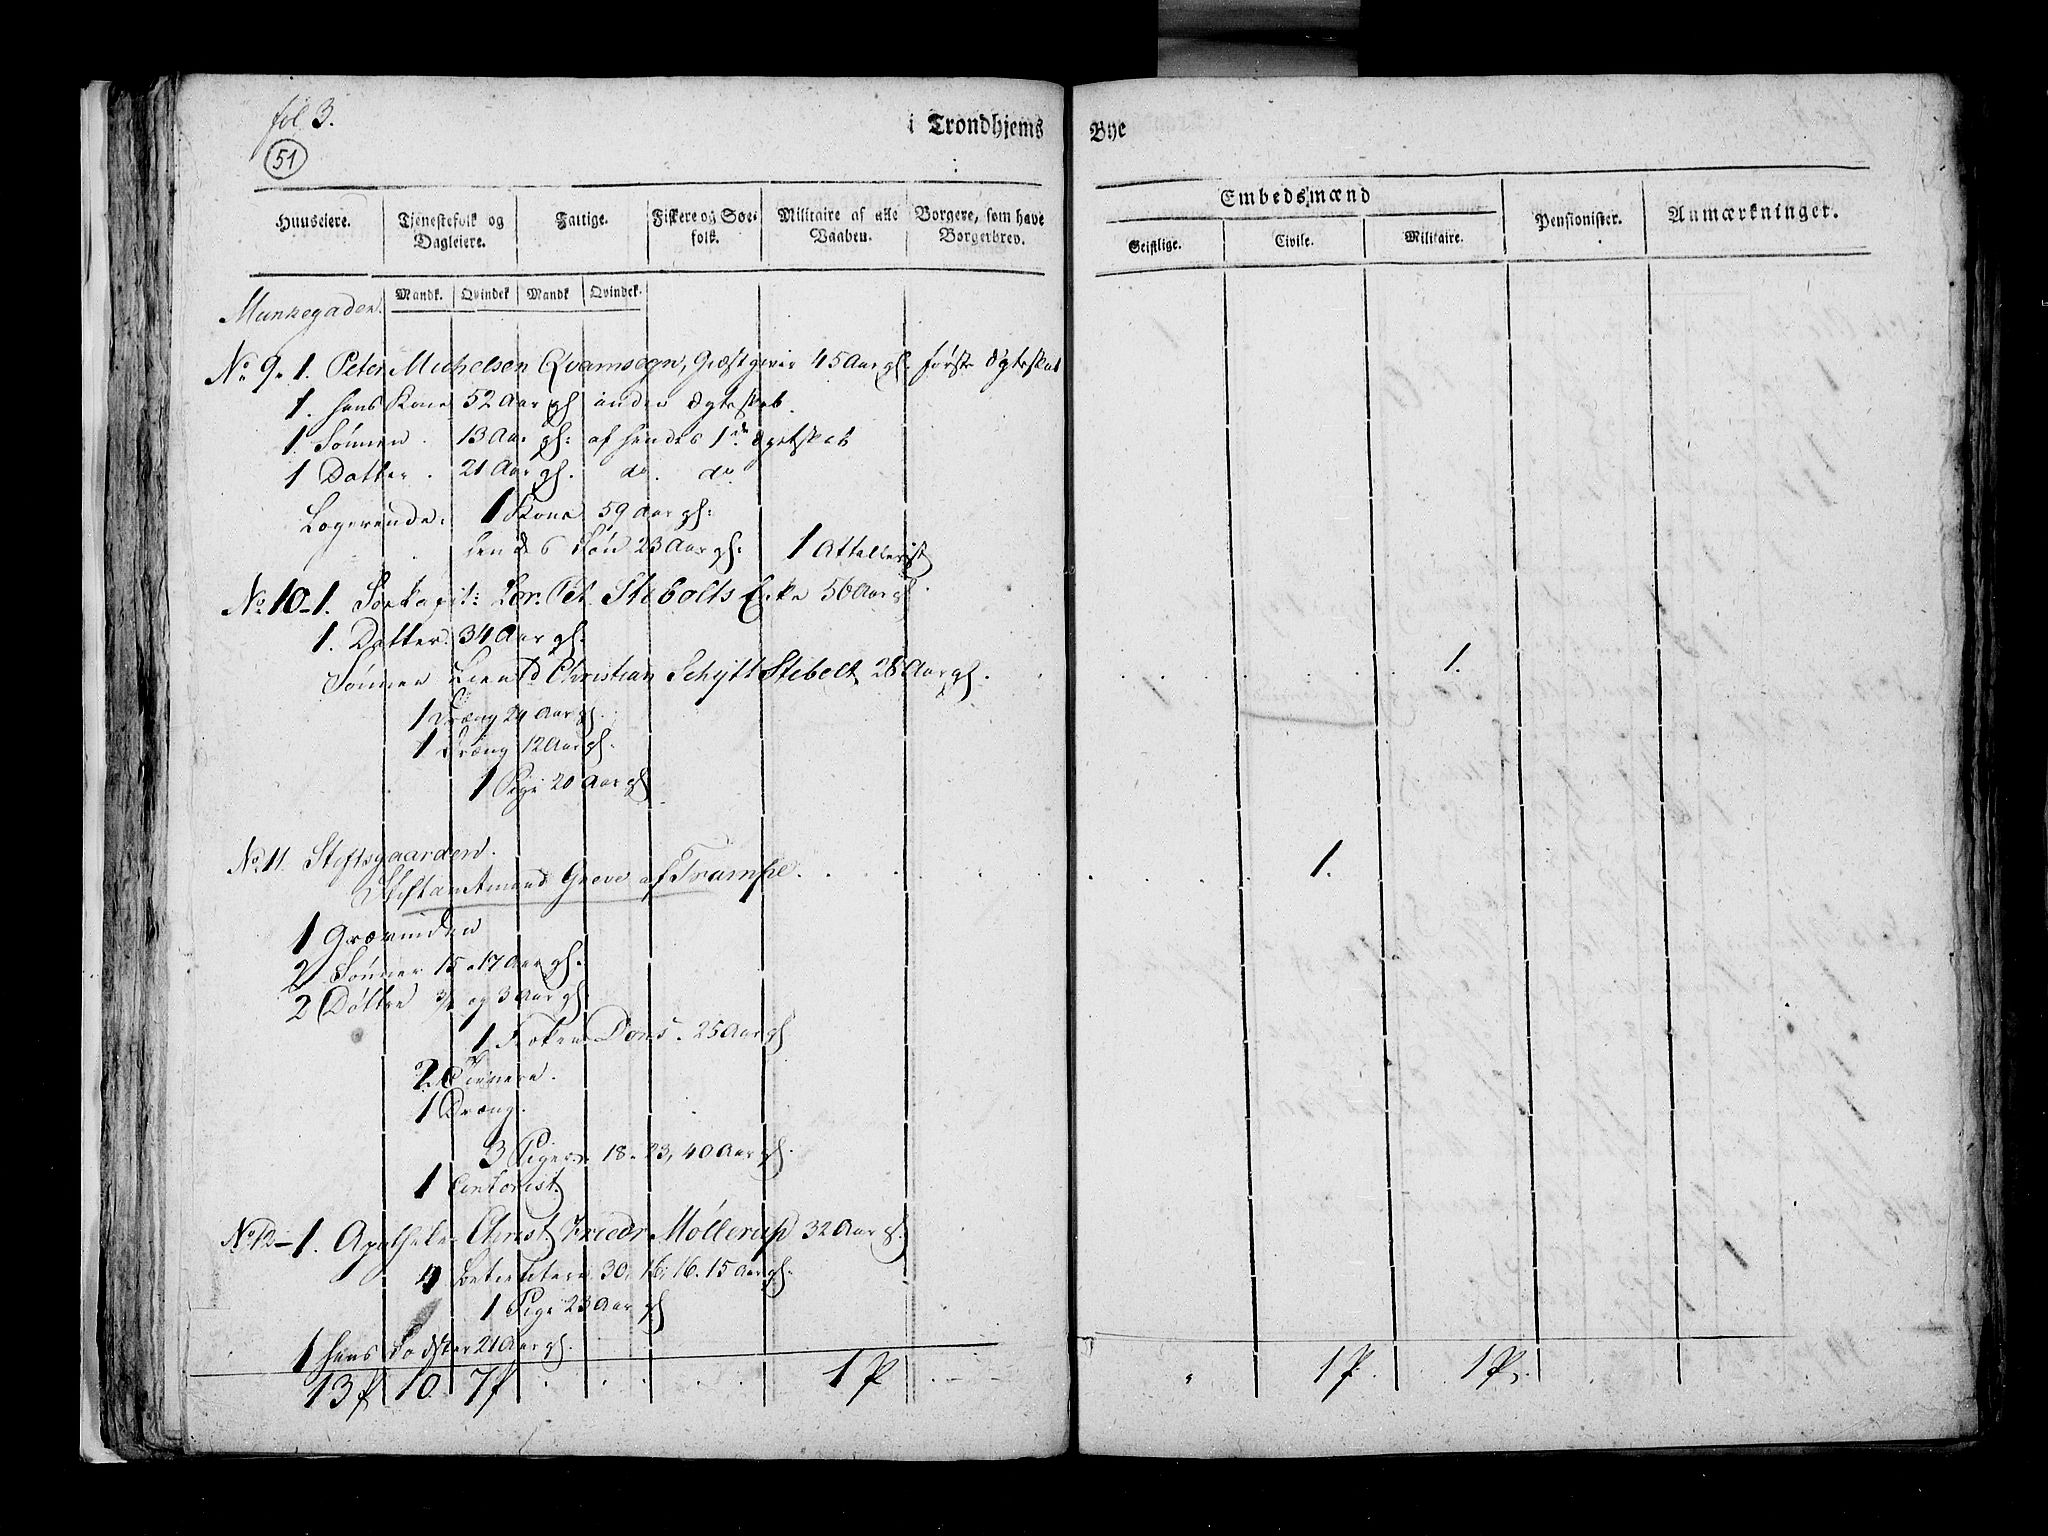 fol 3.
51
i Trondhjems Bye
Huuseiere. Tjenestefolk og Dagleiere. Fattige. Fiskere og Søefolk. Militaire af alle Vaaben. Borgere, som have Borgerbrev. Embedsmænd Pensionister. Anmærkninger.
Geistlige. Civile. Militaire.
Mandk. Qvindek Mandk Qvindek.
Munkegaden.
No 9. 1. Peter Michelsen Qvamsogn, Giæstgiver 45 Aar gl. første Ægteskab
1. hans Kone 52 Aar gl anden Ægteskab.
1 Sønnen. 13 Aar gl: af hendes 1de Ægteskab
1 Datter. 21 Aar gl. do. do.
Logerende: 1 Kone 59 Aar gl:
hendes Søn 23 Aar gl: 1 Attellerist
No 10-1. Søekapit: Lor. Pet. Stibolts Enke 56 Aar gl.
1. Datter. 34 Aar gl.
Sønnen Lieut Christian Schytt Stibolt 28 Aar gl. 1.
1 Dræng 24 Aar gl.
1 Dræng 12 Aar gl.
1 Pige 20 Aar gl
No 11. Stiftsgaarden.
Stiftamtmand Greve af Trampe. 1.
1 Grævinden
2 Sønner 15 a 17 Aar gl.
2 Døttre 3/4 og 3 Aar gl.
1 Frøken Dons. 25 Aar gl
2 Tienere.
1 Dræng.
3 Piger 18. 23, 40 Aar gl.
1 Contorist.
No 12-1. Apotheker Christ Friedr Møllerup 32 Aar gl.
4 Betientere 30. 16. 16. 15 Aar gl.
1 Pige 23 Aar gl
1 hans Sødster 21 Aar gl.
13 f 10. 7 f 1 P. 1 P. 1 P.